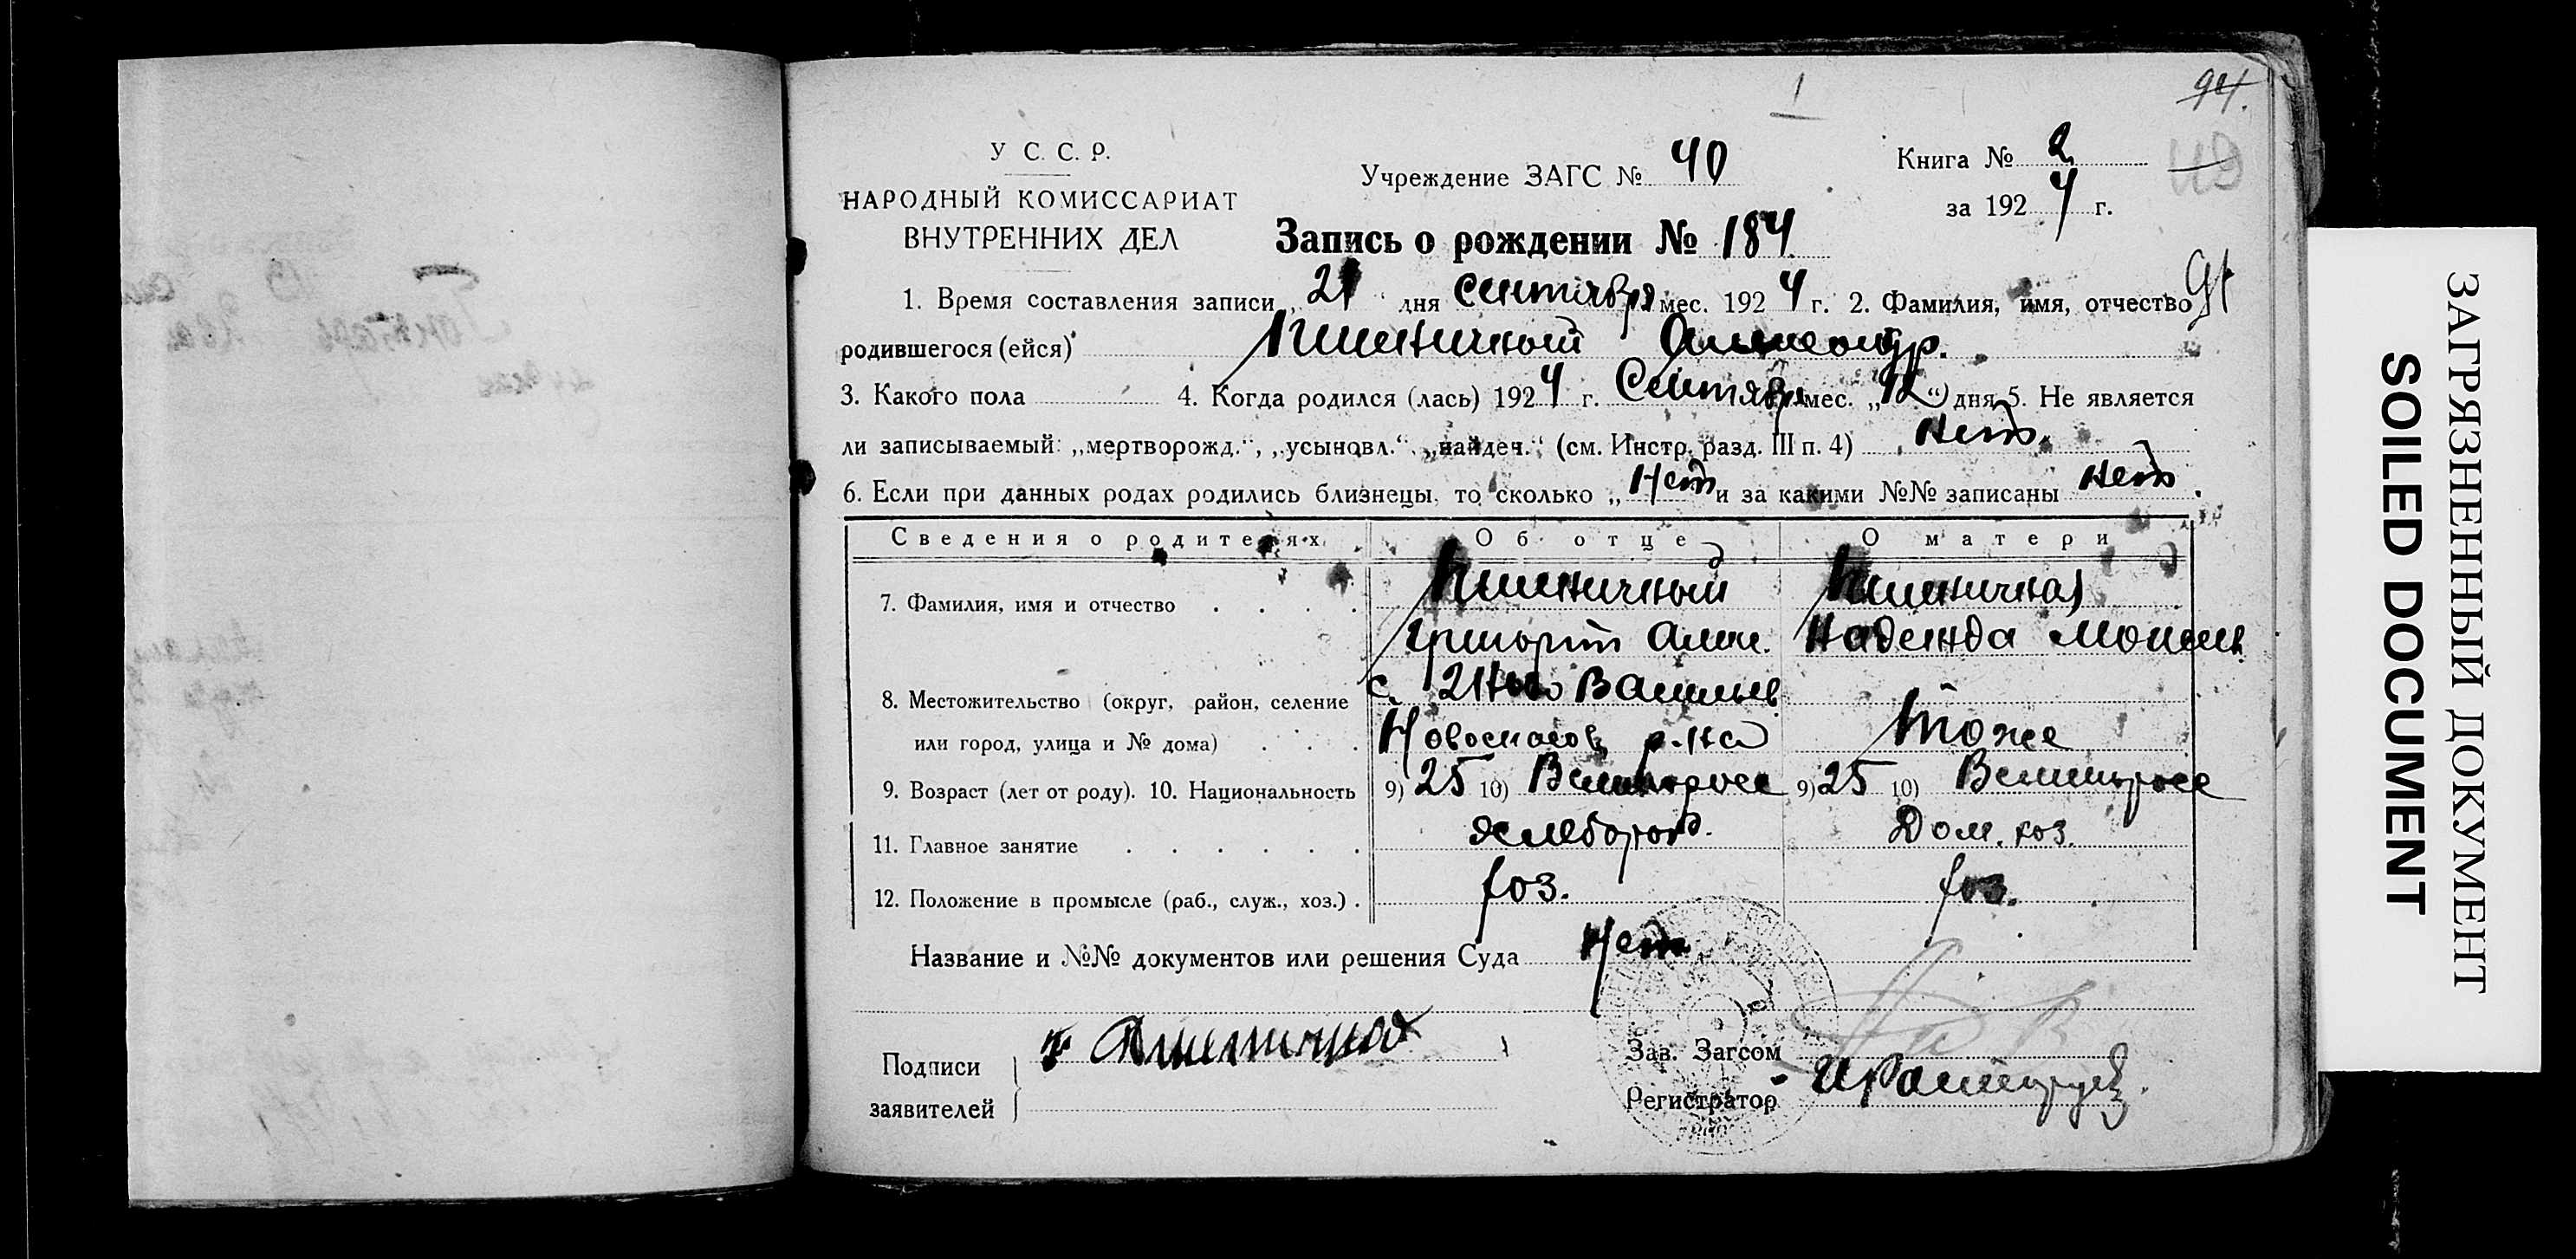 1
94.
У С. С. Р.
НАРОДНЫЙ КОМИССАРИАТ
ВНУТРЕННИХ ДЕЛ
Учреждение ЗАГС № 40
Книга № 2
за 1924 г.
Запись о рождении № 184
1. Время составления записи „21“ дня Сентября мес. 1924 г. 2. Фамилия, имя, отчество
родившегося (ейся) Пшеничный Александр.
3. Какого пола 4. Когда родился (лась) 1924 г. Сентября мес. „12“ дня 5. Не является
ли записываемый: „мертворожд.“, „усыновл.“ „найдеч.“ (см. Инстр. разд. III п. 4) Нет.
6. Если при данных родах родились близнецы, то сколько „Нет и за какими №№ записаны Нет.
Сведения о родителях Об отце О матери
7. Фамилия, имя и отчество Пшеничный Пшеничная
Григорий Алек. Надежда Моисеев
8. Местожительство (округ, район, селение с. 2 Ново Васильев
или город, улица и № дома) Новоспасов р-на тоже
9. Возраст (лет от роду). 10. Национальность 9) 25 10) Великоросс 9) 25 10) Великоросс
11. Главное занятие Хлебороб. Дом. хоз.
12. Положение в промысле (раб., служ., хоз.) хоз. хоз.
Название и №№ документов или решения Суда Нет
Подписи
заявителей
Пшеничная
Зав. Загсом
Регистратор
ЗАГРЯЗНЕННЫЙ ДОКУМЕНТ
SOILED DOCUMENT